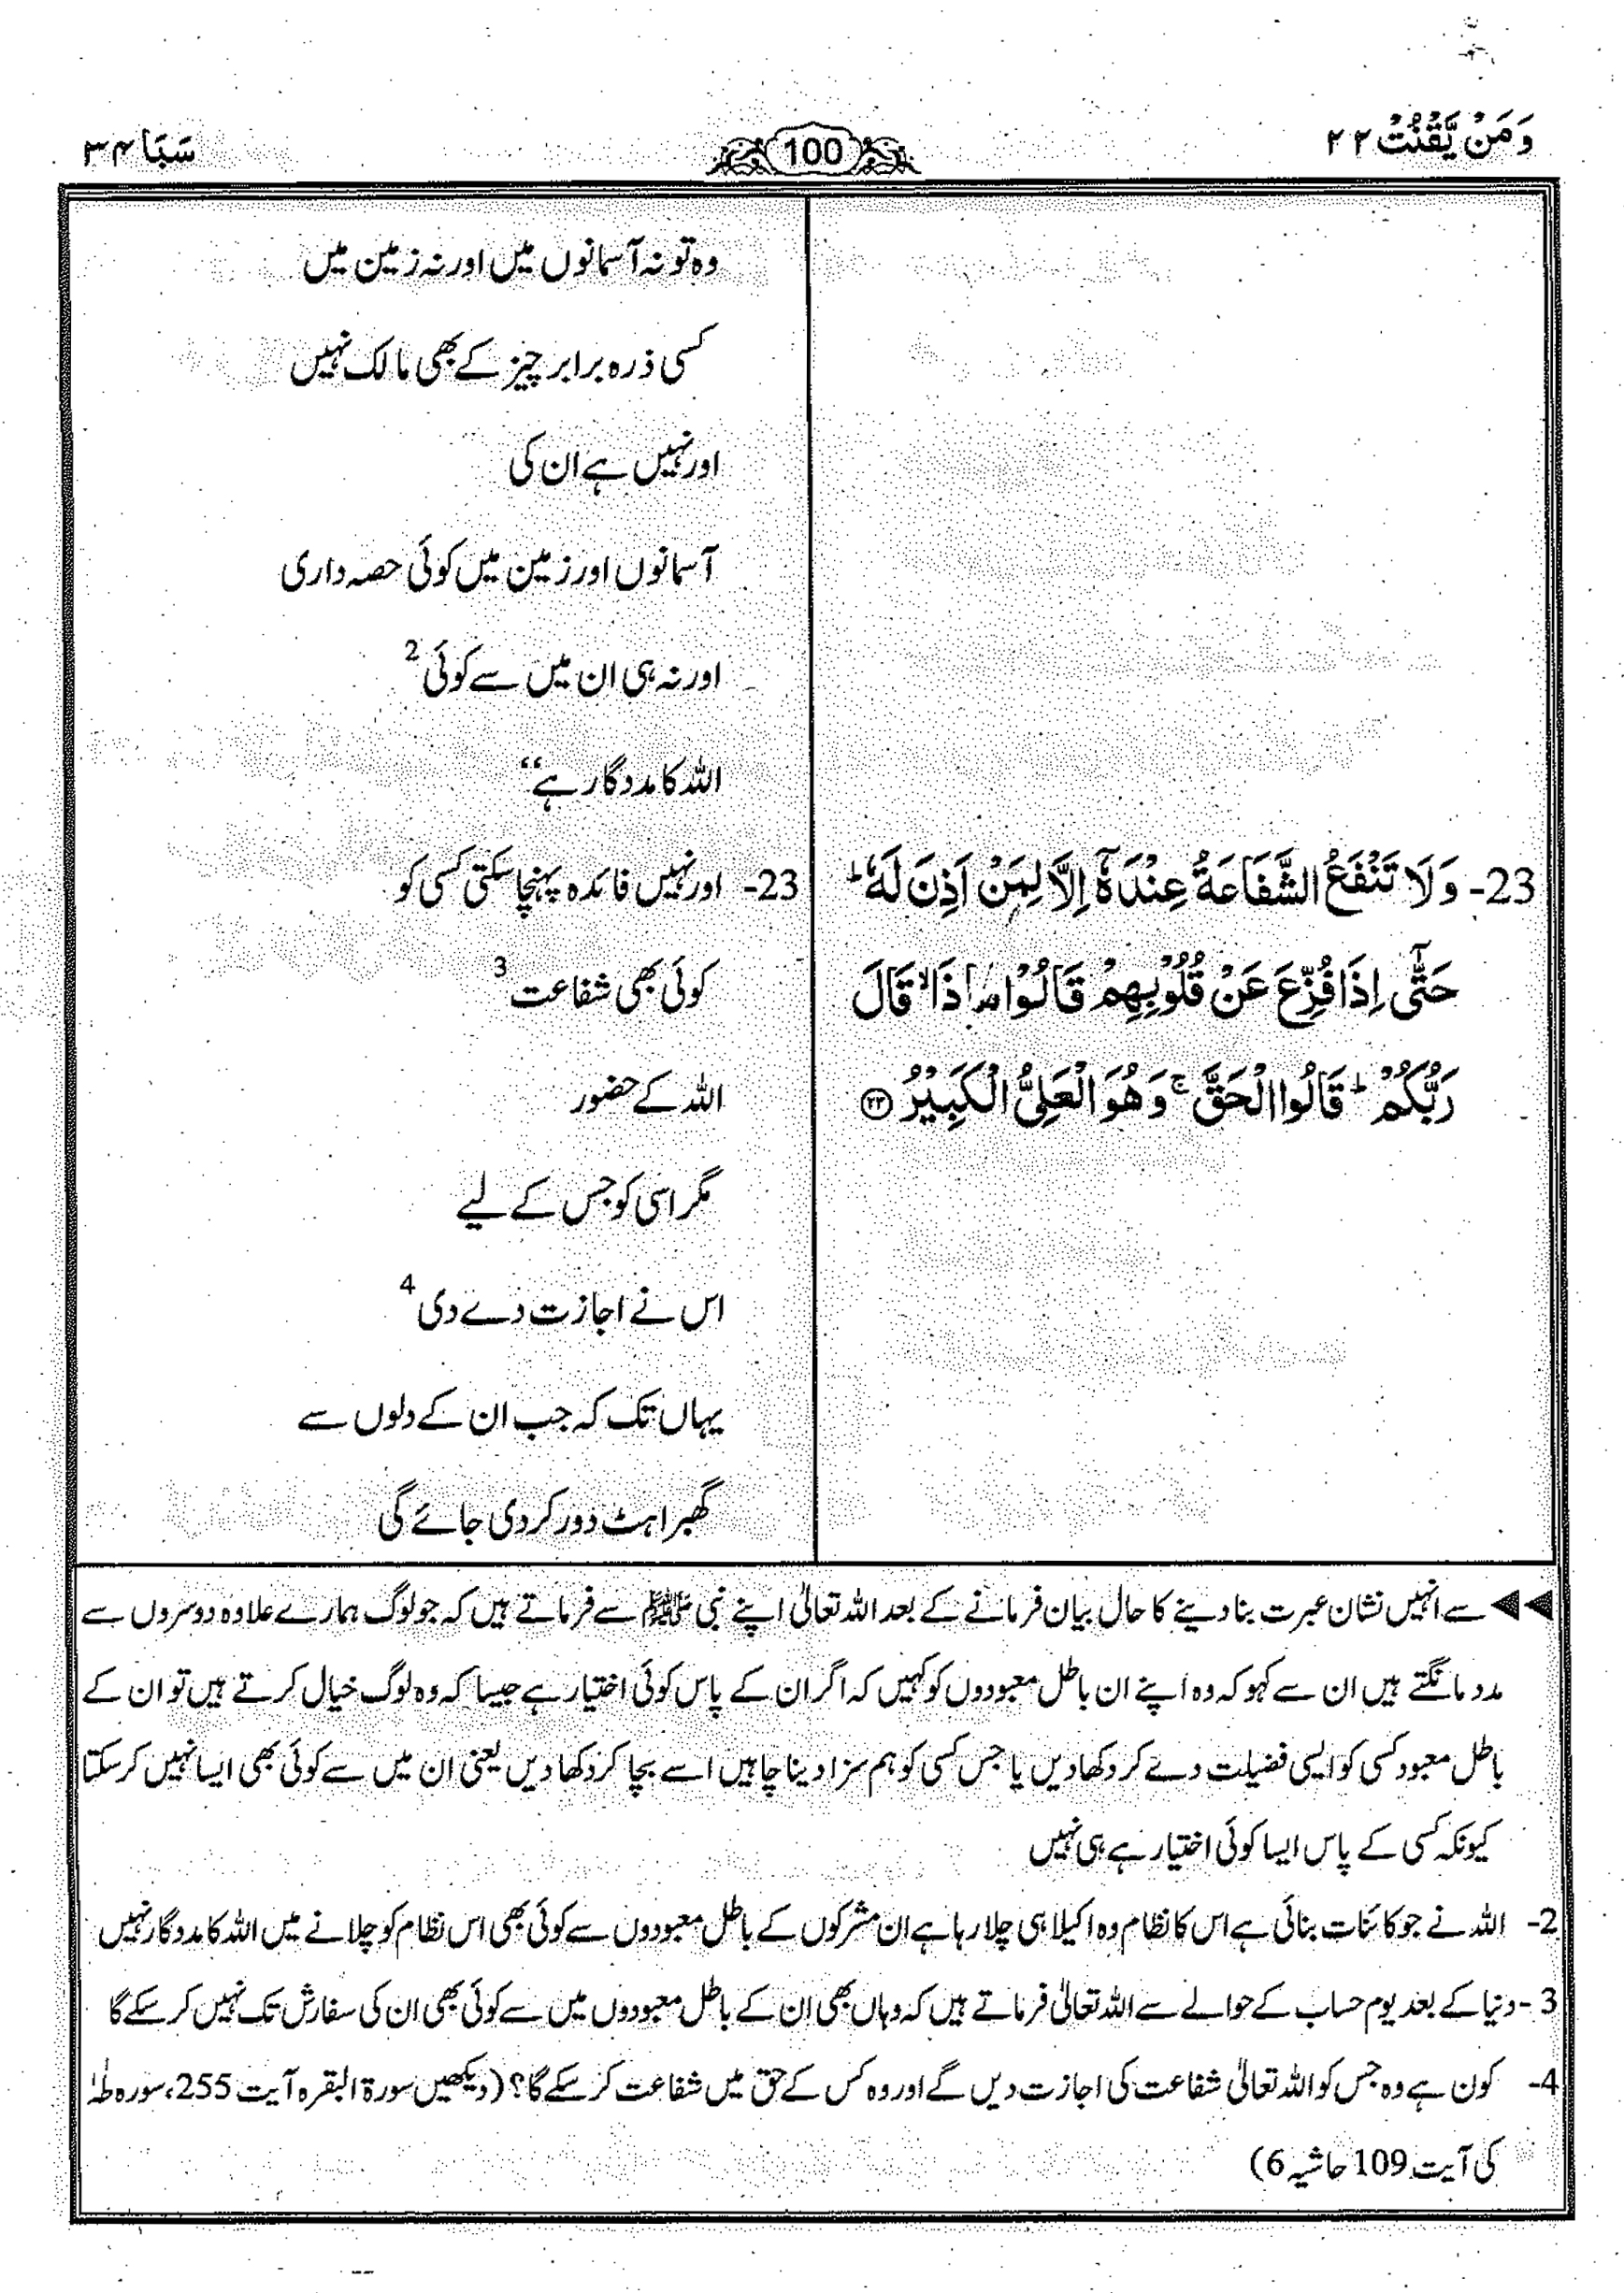 وَمَنْ يَّقْنُتْ ۲۲
100
سَبَا ۳۴
وہ تو نہ آسمانوں میں اور نہ زمین میں
کسی ذرہ برابر چیز کے بھی مالک نہیں
اور نہیں ہے ان کی
آسمانوں اور زمین میں کوئی حصہ داری
اور نہ ہی ان میں سے کوئی 2
اللہ کا مددگار ہے‘‘
23- وَلَا تَنْفَعُ الشَّفَاعَةُ عِنْدَهٗٓ اِلَّا لِمَنْ اَذِنَ لَهٗ ؕ
حَتّٰٓى اِذَا فُزِّعَ عَنْ قُلُوْبِهِمْ قَالُوْا مَاذَا ۙ قَالَ
رَبُّكُمْ ؕ قَالُوا الْحَقَّ ۚ وَهُوَ الْعَلِیُّ الْكَبِیْرُ ﴿۲۳﴾
23- اور نہیں فائدہ پہنچا سکتی کسی کو
کوئی بھی شفاعت 3
اللہ کے حضور
مگر اسی کو جس کے لیے
اس نے اجازت دے دی 4
یہاں تک کہ جب ان کے دلوں سے
گھبراہٹ دور کر دی جائے گی
◄◄ سے انہیں نشان عبرت بنا دینے کا حال بیان فرمانے کے بعد اللہ تعالیٰ اپنے نبی ﷺ سے فرماتے ہیں کہ جو لوگ ہمارے علاوہ دوسروں سے
مدد مانگتے ہیں ان سے کہو کہ وہ اپنے ان باطل معبودوں کو کہیں کہ اگر ان کے پاس کوئی اختیار ہے جیسا کہ وہ لوگ خیال کرتے ہیں تو ان کے
باطل معبود کسی کو ایسی فضیلت دے کر دکھا دیں یا جس کسی کو ہم سزا دینا چاہیں اسے بچا کر دکھا دیں یعنی ان میں سے کوئی بھی ایسا نہیں کر سکتا
کیونکہ کسی کے پاس ایسا کوئی اختیار ہے ہی نہیں
2- اللہ نے جو کائنات بنائی ہے اس کا نظام وہ اکیلا ہی چلا رہا ہے ان مشرکوں کے باطل معبودوں سے کوئی بھی اس نظام کو چلانے میں اللہ کا مددگار نہیں
3- دنیا کے بعد یوم حساب کے حوالے سے اللہ تعالیٰ فرماتے ہیں کہ وہاں بھی ان کے باطل معبودوں میں سے کوئی بھی ان کی سفارش تک نہیں کر سکے گا
4- کون ہے وہ جس کو اللہ تعالیٰ شفاعت کی اجازت دیں گے اور وہ کس کے حق میں شفاعت کر سکے گا؟ (دیکھیں سورۃ البقرہ آیت 255، سورہ طہٰ
کی آیت 109 حاشیہ 6)